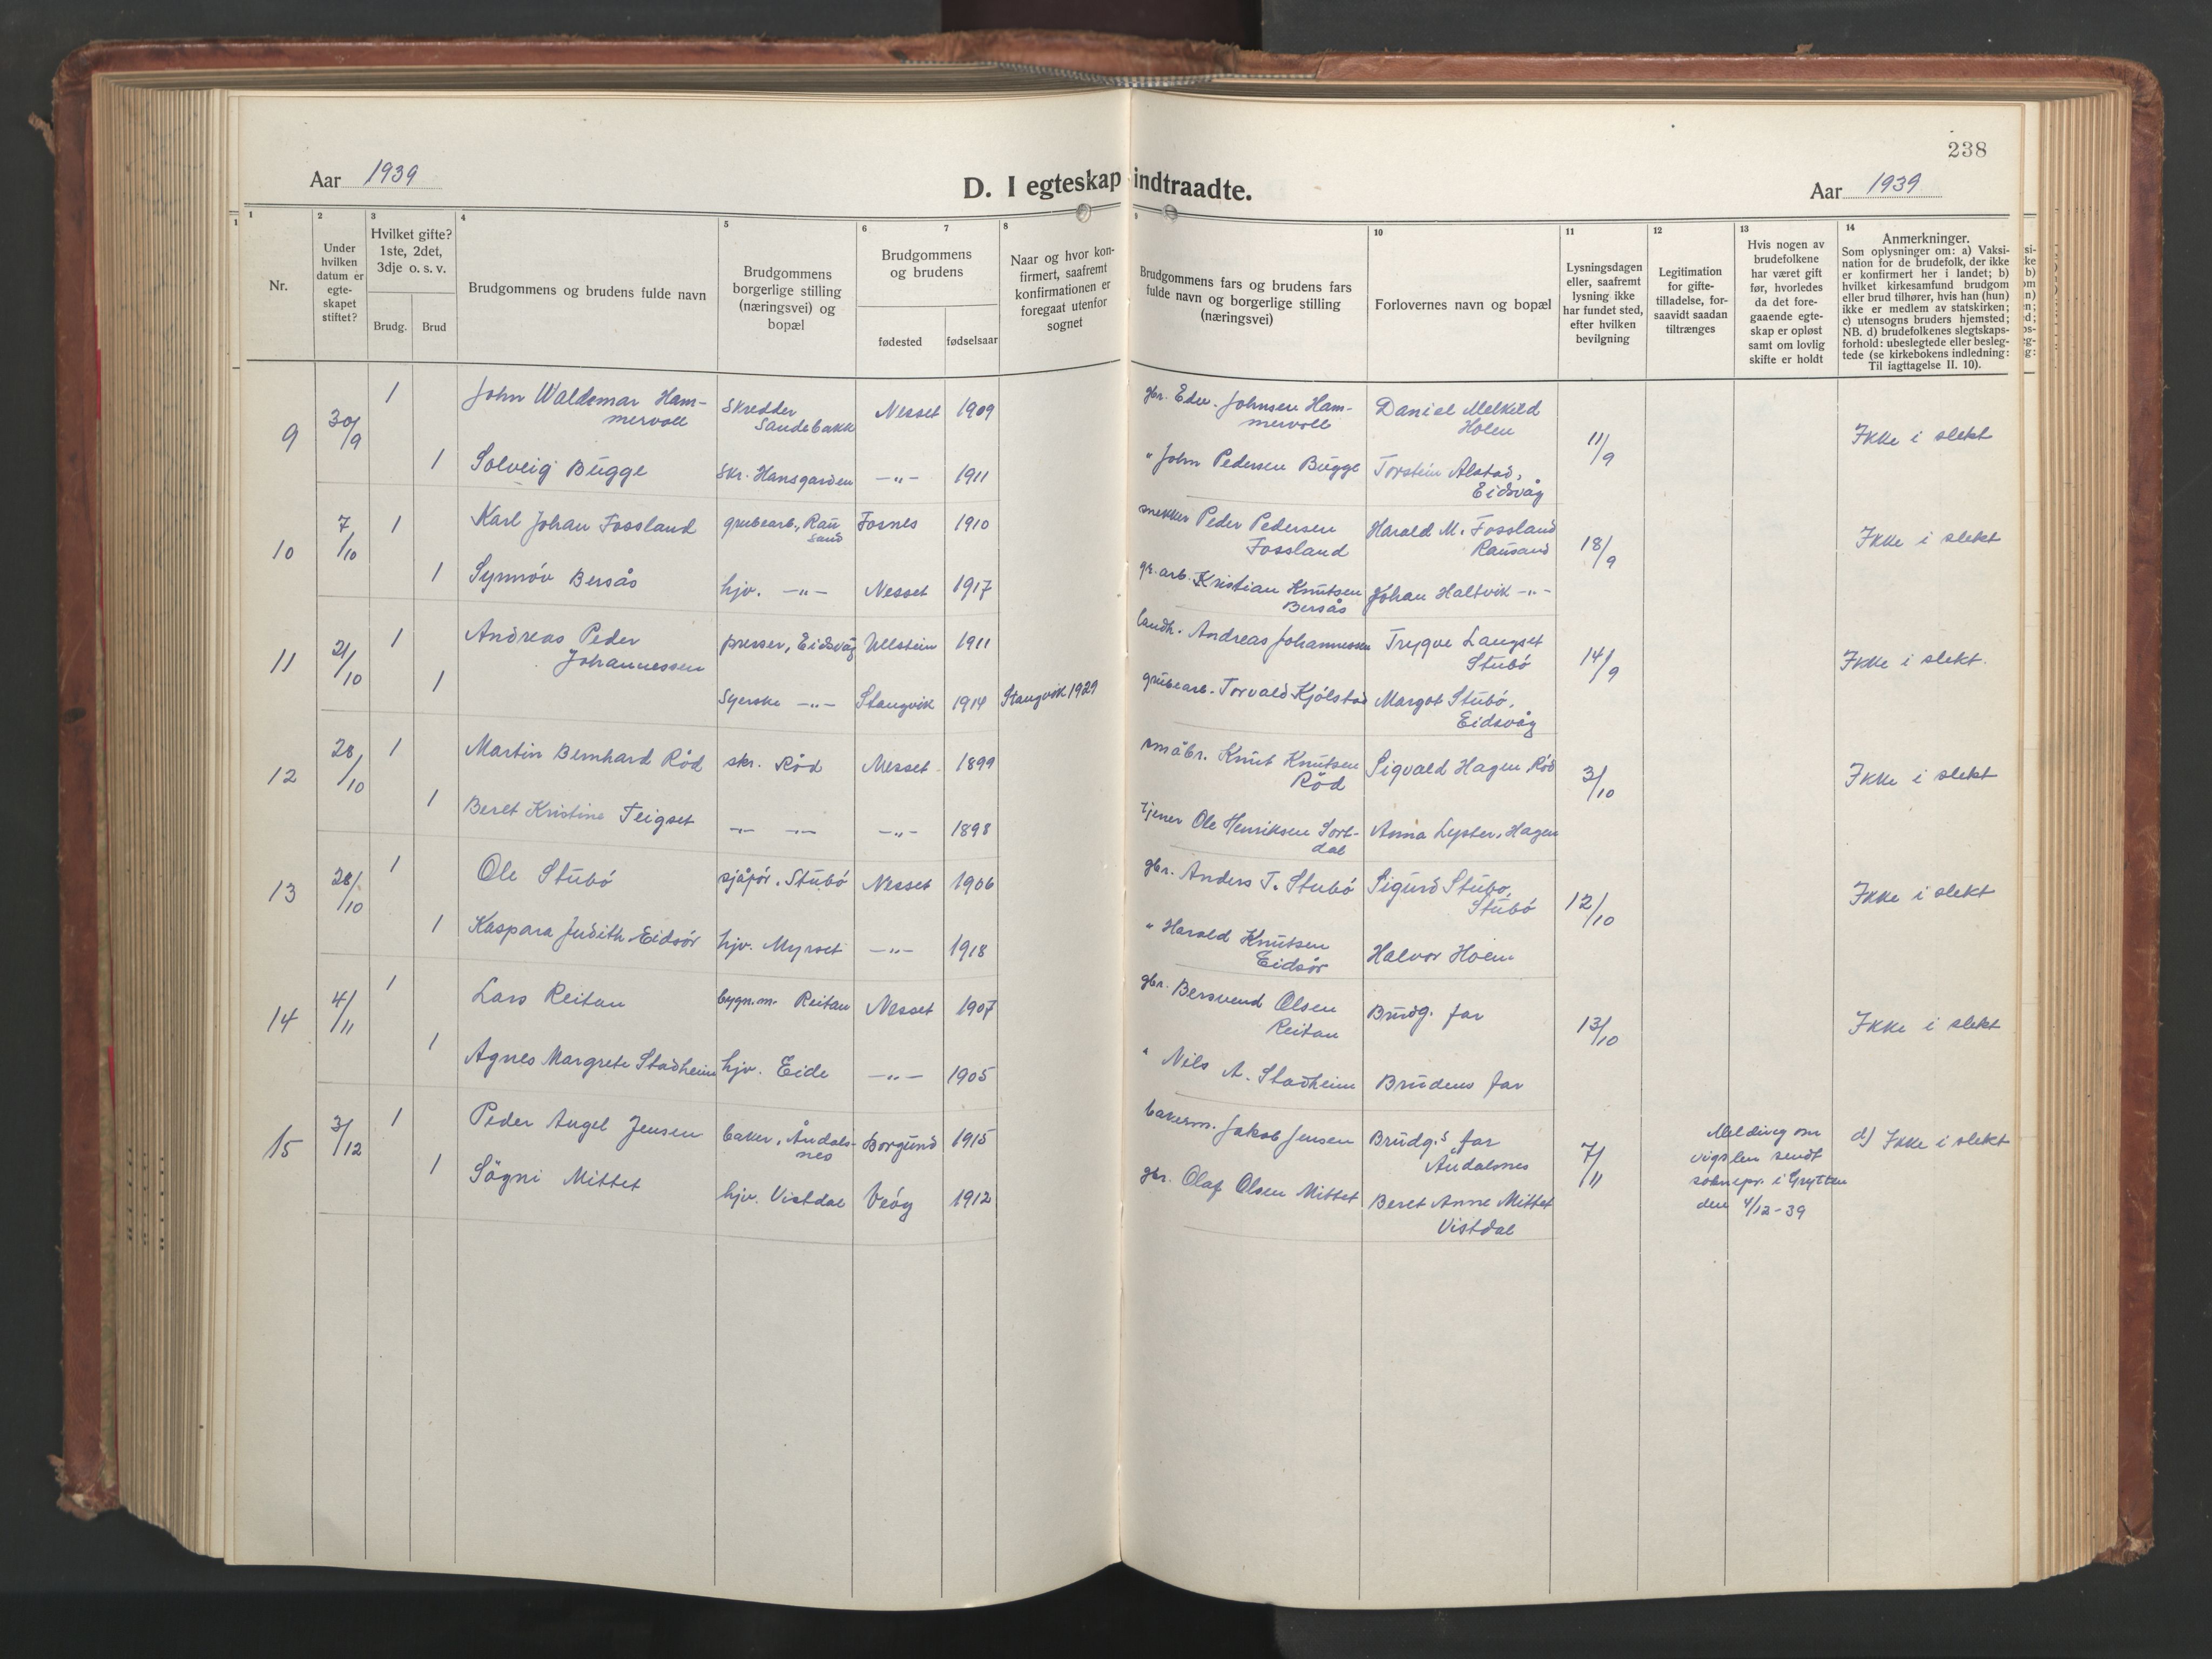 238
Aar 1939
D. I egteskap indtraadte.
Aar 1939
1
2
3
4
5
6
7
8
9
10
11
12
13
14
Nr.
Under
hvilken
datum er
egte-
skapet
stiftet?
Hvilket gifte?
1ste, 2det,
3dje o. s. v.
Brudg.
Brud
Brudgommens og brudens fulde navn
Brudgommens
borgerlige stilling
(næringsvei) og
bopæl
Brudgommens
og brudens
fødested
fødselsaar
Naar og hvor kon-
firmert, saafremt
konfirmationen er
foregaat utenfor
sognet
Brudgommens fars og brudens fars
fulde navn og borgerlige stilling
(næringsvei)
Forlovernes navn og bopæl
Lysningsdagen
eller, saafremt
lysning ikke
har fundet sted,
efter hvilken
bevilgning
Legitimation
for gifte-
tilladelse, for-
saavidt saadan
tiltrænges
Hvis nogen av
brudefolkene
har været gift
før, hvorledes
da det fore-
gaaende egte-
skap er opløst
samt om lovlig
skifte er holdt
Anmerkninger.
Som oplysninger om: a) Vaksi-
nation for de brudefolk, der ikke
er konfirmert her i landet; b)
hvilket kirkesamfund brudgom
eller brud tilhører, hvis han (hun)
ikke er medlem av statskirken;
c) utensogns bruders hjemsted;
NB. d) brudefolkenes slegtskaps-
forhold: ubeslegtede eller besleg-
tede (se kirkebokens indledning:
Til iagttagelse II. 10).
9 30/9 1 John Waldemar Ham-
mervoll Skredder
Sandebakk Nesset 1909 gbr. Edv. Johnsen Ham-
mervoll Daniel Melkild
Holen 11/9 Ikke i slekt
1 Solveig Bugge Skr. Hansgarden -„- 1911 " John Pedersen Bugge Torstein Alstad,
Eidsvåg
10 7/10 1 Karl Johan Fossland grubearb., Rau
sand Fosnes 1910 snekker Peder Pedersen
Fossland Harald M. Fossland
Rausand 18/9 Ikke i slekt
1 Synnöv Bersås hjv. -„- Nesset 1917 gr.arb. Kristian Knutsen
Bersås Johan Haltvik -„-
11 21/10 1 Andreas Peder
Johannessen presser, Eidsvåg Ulstein 1911 landh. Andreas Johannessen Trygve Langset
Stubö 14/9 Ikke i slekt.
1 Syerske -„- Stangvik 1914 Stangvik 1929 grubearb. Torvald Kjölstad Margot Stubö,
Eidsvåg
12 28/10 1 Martin Bernhard Röd skr. Röd Nesset 1899 småbr. Knut Knutsen
Röd Sigvald Hagen Röd 3/10 Ikke i slekt
1 Beret Kristine Teigset -„- -„- -„- 1898 tjener Ole Henriksen Tort-
dal Anna Lyster, Hagen
13 28/10 1 Ole Stubö sjåför, Stubö Nesset 1906 gbr. Anders T. Stubö Sigurd Stubo,
Stubö 12/10 Ikke i slekt
1 Kaspara Judith Eidsör hjv. Myrset -„- 1918 " Harald Knutsen
Eidsör Halvor Hoem
14 4/11 1 Lars Reitan bygn.m. Reitan Nesset 1907 gbr. Bersvend Olsen
Reitan Brudg. far 13/10 Ikke i slekt
1 Agnes Margrete Stadheim hjv. Eide -„- 1905 " Nils A. Stadheim Brudens far
15 3/12 1 Peder Angel Jensen baker, Åndals-
nes Borgund 1915 bakerm. Jakob Jensen Brudg.s far
Åndalsnes 7/11 Melding om
vigslen sendt
soknepr. i Grytten
den 4/12-39 d) Ikke i slekt
1 Sögni Mittet hjv. Vistdal Veöy 1912 gbr. Olaf Olsen Mittet Beret Anne Mittet
Vistdal